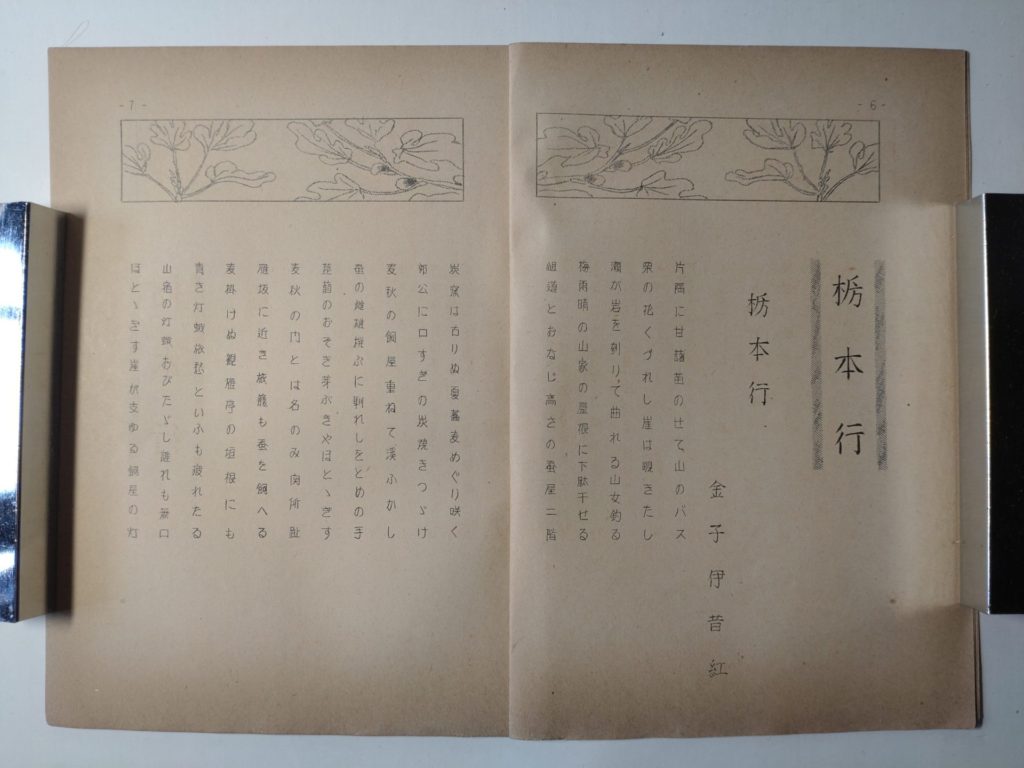 - 6 -
栃本行
栃本行
金子伊昔紅
片隅に甘藷苗のせて山のバス
栗の花くづれし崖は曝さたし
瀬が岩を刳りて曲れる山女釣る
梅雨晴の山家の屋根に下駄干せる
岨道とおなじ高さの蚕屋二階
- 7 -
炭窯は古りぬ夏蕎麦めぐり咲く
郭公に口すぎの炭焼きつゞけ
麦秋の飼屋重ねて渓ふかし
蚕の雌雄撰ぶに馴れしをとめの手
蒟蒻のおそき芽ぶきやほとゝぎす
麦秋の門とは名のみ関所趾
雁坂に近き旅籠も蚕を飼へる
麦掛けぬ観 亭の垣根にも
青き灯蛾旅愁といふも疲れたる
山宿の灯蛾おびたゞし誰も無口
ほとゝぎす崖が支ゆる飼屋の灯